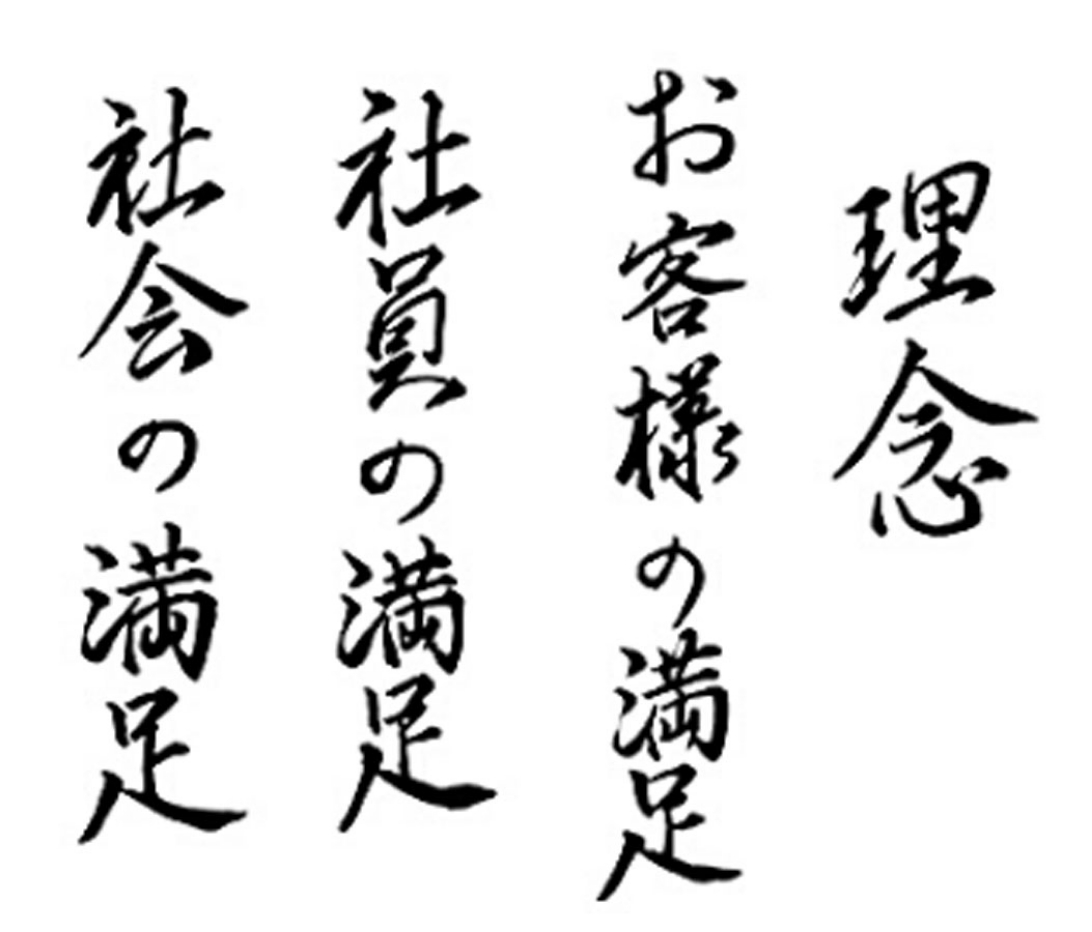 理念
お客様の満足
社員の満足
社会の満足